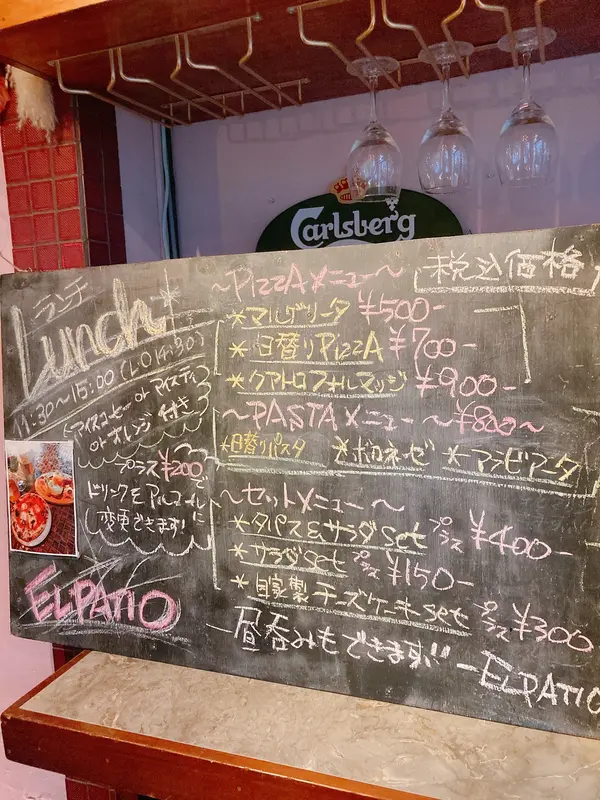 Carlsberg
ランチ
Lunch
11:30〜15:00 (LO14:30)
アイスコーヒー or アイスティ
or オレンジ 付き
プラス ¥200で
ドリンクをアルコールに
変更できます!
EL PATIO
〜PIZZAメニュー〜 税込価格
*マルゲリータ ¥500-
*日替りPIZZA ¥700-
*クアトロフォルマッジ ¥900-
〜PASTAメニュー 〜¥800〜
*日替りパスタ *ボロネーゼ *アラビアータ
〜セットメニュー〜
*タパス&サラダset プラス ¥400-
*サラダset プラス ¥150-
*自家製チーズケーキset プラス ¥300
-昼呑みもできます!! -EL PATIO